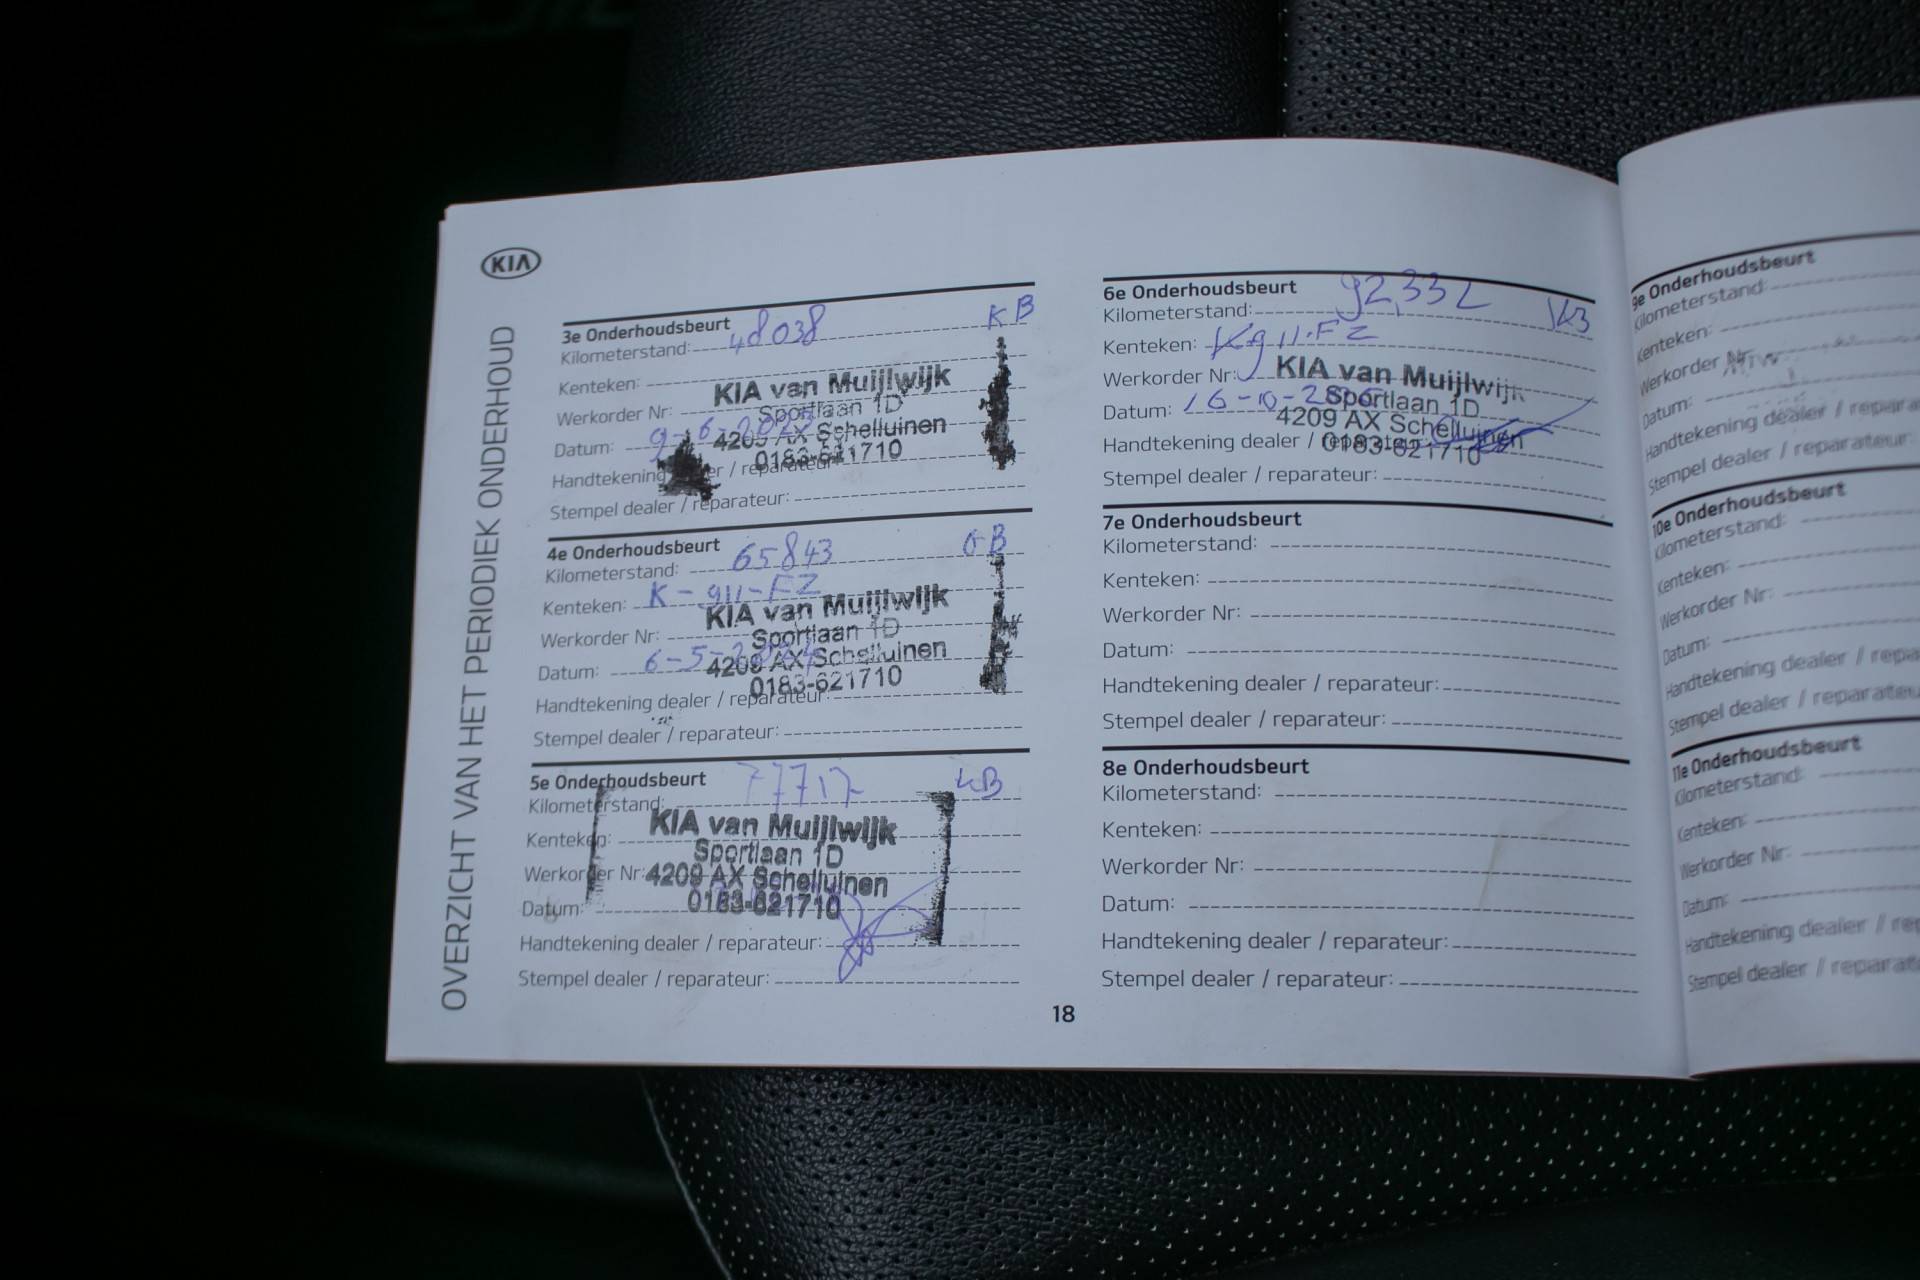 KIA
OVERZICHT VAN HET PERIODIEK ONDERHOUD
3e Onderhoudsbeurt
Kilometerstand: 48038 KB
Kenteken:
KIA van Muijlwijk
Werkorder Nr:
Sportlaan 1D
Datum: 9-6-2023
4209 AX Schelluinen
0183-621710
Handtekening dealer / reparateur:
Stempel dealer / reparateur:
4e Onderhoudsbeurt
Kilometerstand: 65843 GB
Kenteken: K-911-FZ
KIA van Muijlwijk
Werkorder Nr:
Sportlaan 1D
Datum: 6-5-2024
4209 AX Schelluinen
0183-621710
Handtekening dealer / reparateur:
Stempel dealer / reparateur:
5e Onderhoudsbeurt
Kilometerstand: 77717 KB
KIA van Muijlwijk
Kenteken:
Sportlaan 1D
Werkorder Nr:
4209 AX Schelluinen
0183-621710
Datum:
Handtekening dealer / reparateur:
Stempel dealer / reparateur:
6e Onderhoudsbeurt
Kilometerstand: 92,332 KB
Kenteken: K911-FZ
KIA van Muijlwijk
Werkorder Nr:
Sportlaan 1D
Datum: 16-10-2025
4209 AX Schelluinen
0183-621710
Handtekening dealer / reparateur:
Stempel dealer / reparateur:
7e Onderhoudsbeurt
Kilometerstand:
Kenteken:
Werkorder Nr:
Datum:
Handtekening dealer / reparateur:
Stempel dealer / reparateur:
8e Onderhoudsbeurt
Kilometerstand:
Kenteken:
Werkorder Nr:
Datum:
Handtekening dealer / reparateur:
Stempel dealer / reparateur:
18
9e Onderhoudsbeurt
Kilometerstand:
Kenteken:
Werkorder Nr:
Datum:
Handtekening dealer / repara
Stempel dealer / reparateur:
10e Onderhoudsbeurt
Kilometerstand:
Kenteken:
Werkorder Nr:
Datum:
Handtekening dealer / repa
Stempel dealer / reparateu
11e Onderhoudsbeurt
Kilometerstand:
Kenteken:
Werkorder Nr:
Datum:
Handtekening dealer / rep
Stempel dealer / reparat